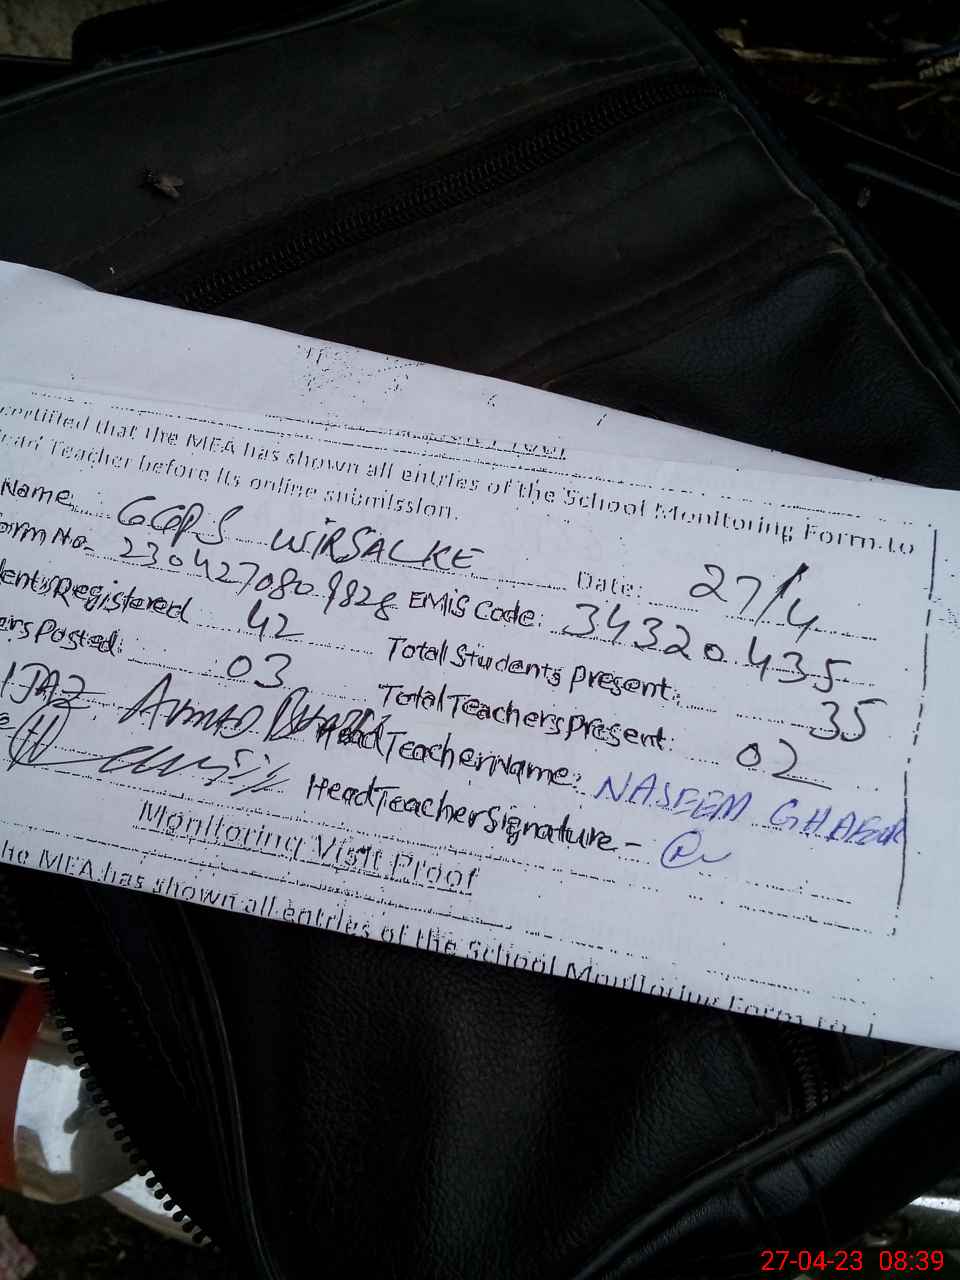 certified that the MEA has shown all entries of the School Monitoring Form to
Head Teacher before its online submission.
Name: GGPS WIRSALKE Date: 27/4
Form No. 230427080.9828 EMIS Code: 34320435
dents Registered 42 Total Students present: 35
ers Posted: 03 Total Teachers Present: 02
IJAZ AHMAD Head Teacher Name: NASEEM GHAFOOR
Head Teacher Signature -
Monitoring Visit Proof
he MEA has shown all entries of the School Monitoring Form to
27-04-23 08:39